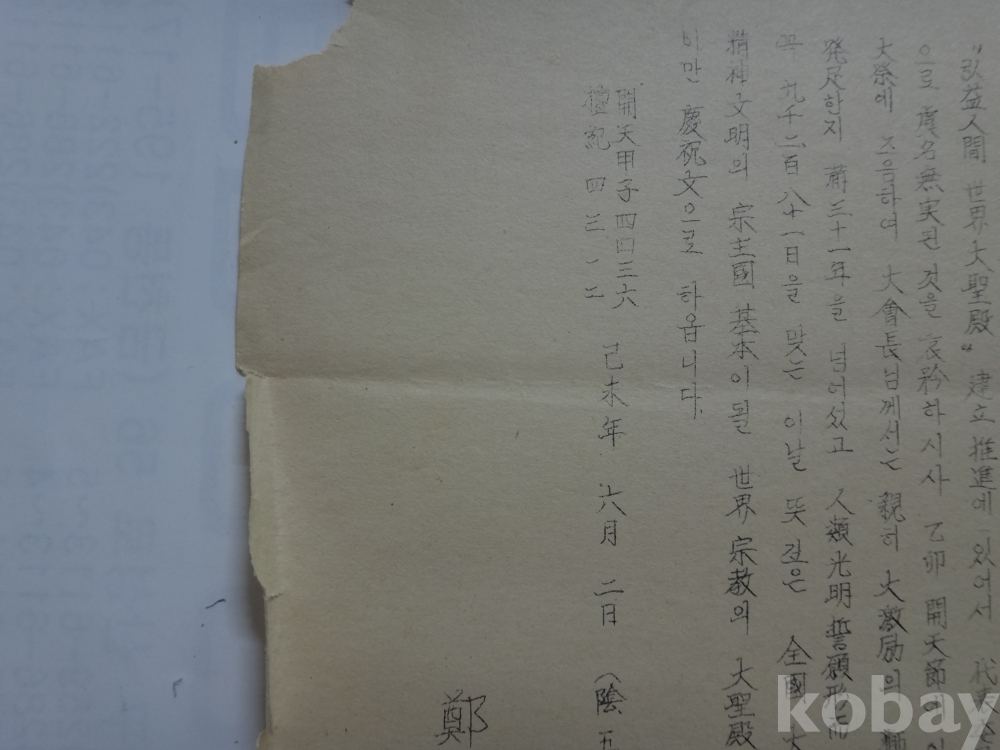 "弘益人間 世界大聖殿" 建立 推進에 있어서 代表
으로 虛名無実된 것을 哀矜하시사 乙卯 開天節
大祭에 즈음하여 大會長님께서는 親히 大激励의
発足한지 滿三十一年을 넘어섰고 人類光明 誓願形而
꼭 九千六百八十一日을 맞는 이날 뜻 깊은 全國 大
精神文明의 宗主國 基本이 될 世界 宗教의 大聖殿
이만 慶祝文으로 하옵니다.
開天甲子四四三六
檀紀 四三一二 己未年 六月 二日 (陰五
鄭
kobay